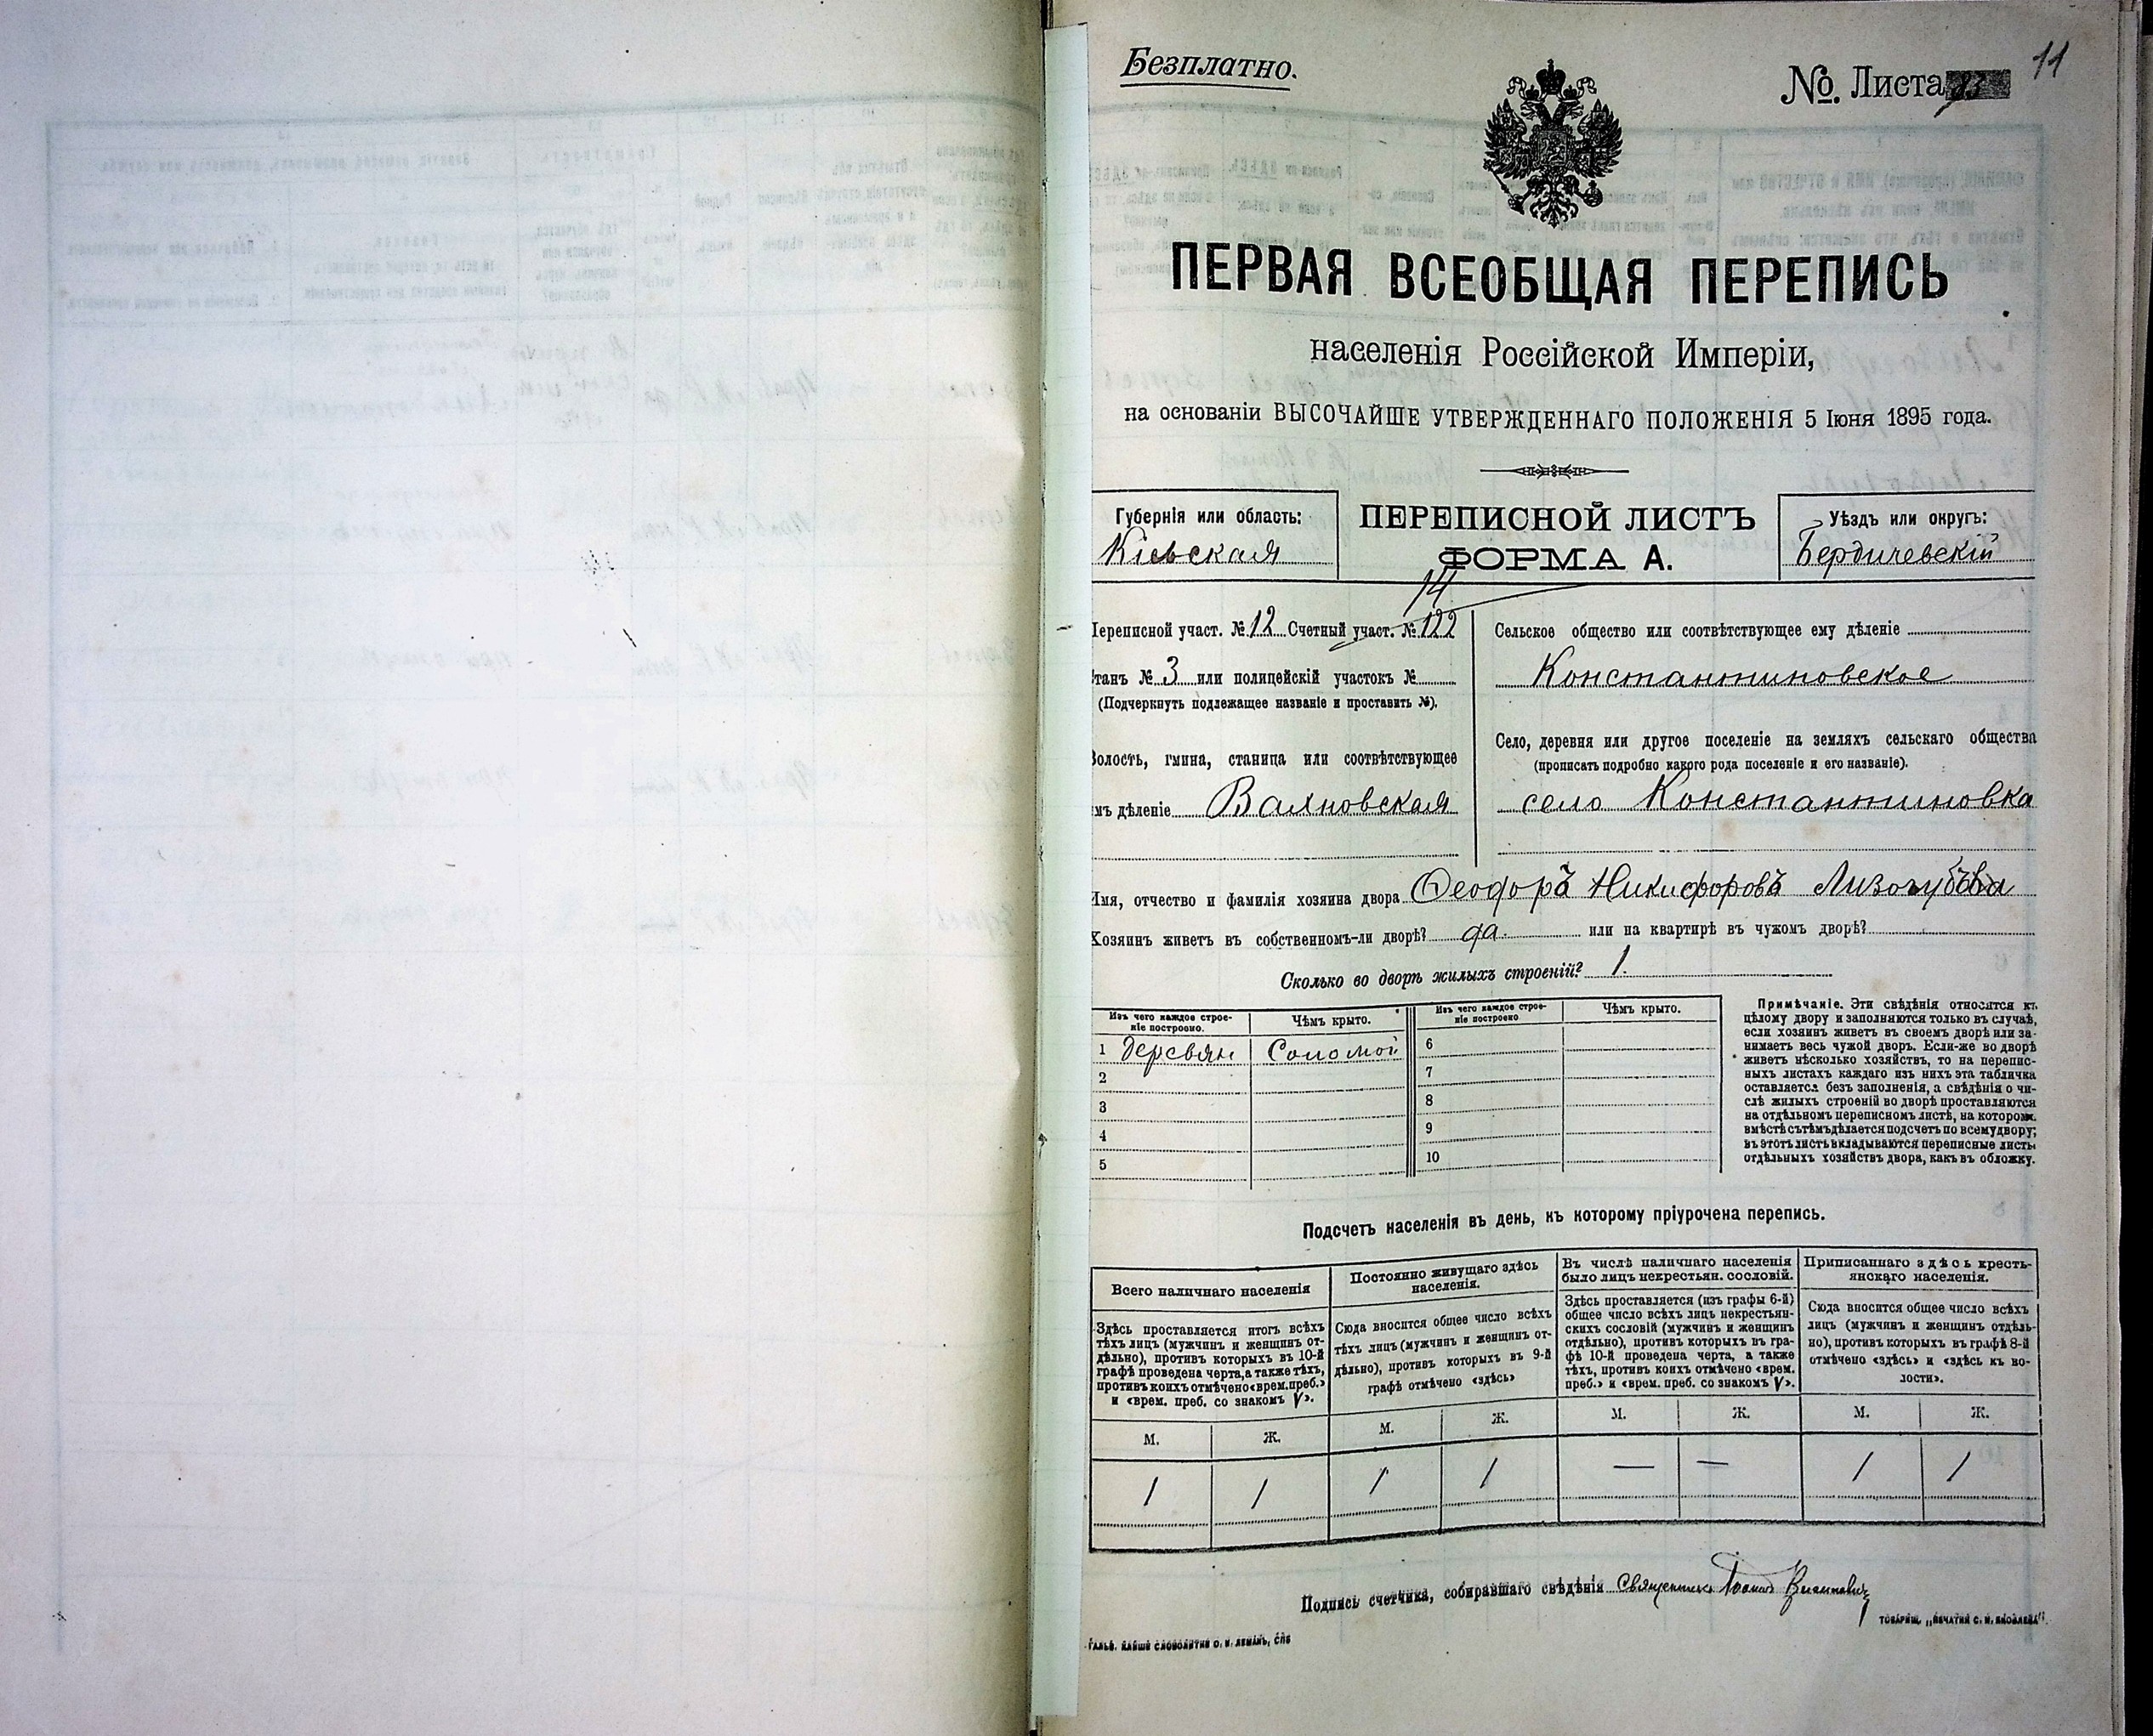 Безплатно.
11
№. Листа
ПЕРВАЯ ВСЕОБЩАЯ ПЕРЕПИСЬ
населенія Россійской Имперіи,
на основаніи ВЫСОЧАЙШЕ УТВЕРЖДЕННАГО ПОЛОЖЕНІЯ 5 Іюня 1895 года.
Губернія или область:
Кіевская
ПЕРЕПИСНОЙ ЛИСТЪ
ФОРМА А.
Уѣздъ или округъ:
Бердичевскій
14
Переписной участ. № 12 Счетный участ. № 122
Станъ № 3 или полицейскій участокъ №
(Подчеркнуть подлежащее названіе и проставить №).
Волость, гмина, станица или соотвѣтствующее
имъ дѣленіе Вахновская
Сельское общество или соотвѣтствующее ему дѣленіе
Константиновское
Село, деревня или другое поселеніе на земляхъ сельскаго общества
(прописать подробно какого рода поселеніе и его названіе).
село Константиновка
Имя, отчество и фамилія хозяина двора Ѳеодоръ Никифоровъ
Хозяинъ живетъ въ собственномъ-ли дворѣ? да. или на квартирѣ въ чужомъ дворѣ?
Сколько во дворѣ жилыхъ строеній? 1.
Изъ чего каждое строе-
ніе построено.
Чѣмъ крыто.
Изъ чего каждое строе-
ніе построено
Чѣмъ крыто.
1 Деревян Соломой 6
2 7
3 8
4 9
5 10
Примѣчаніе. Эти свѣдѣнія относятся къ
цѣлому двору и заполняются только въ случаѣ,
если хозяинъ живетъ въ своемъ дворѣ или за-
нимаетъ весь чужой дворъ. Если-же во дворѣ
живетъ нѣсколько хозяйствъ, то на перепис-
ныхъ листахъ каждаго изъ нихъ эта табличка
оставляется безъ заполненія, а свѣдѣнія о чи-
слѣ жилыхъ строеній во дворѣ проставляются
на отдѣльномъ переписномъ листѣ, на которомъ
вмѣстѣ съ тѣмъ дѣлается подсчетъ по всему двору;
въ этотъ листъ вкладываются переписные листы
отдѣльныхъ хозяйствъ двора, какъ въ обложку.
Подсчетъ населенія въ день, къ которому пріурочена перепись.
Всего наличнаго населенія
Здѣсь проставляется итогъ всѣхъ
тѣхъ лицъ (мужчинъ и женщинъ от-
дѣльно), противъ которыхъ въ 10-й
графѣ проведена черта, а также тѣхъ,
противъ коихъ отмѣчено «врем. преб.»
и «врем. преб. со знакомъ V».
Постоянно живущаго здѣсь
населенія.
Сюда вносится общее число всѣхъ
тѣхъ лицъ (мужчинъ и женщинъ от-
дѣльно), противъ которыхъ въ 9-й
графѣ отмѣчено «здѣсь»
Въ числѣ наличнаго населенія
было лицъ некрестьян. сословій.
Здѣсь проставляется (изъ графы 6-й)
общее число всѣхъ лицъ некрестьян-
скихъ сословій (мужчинъ и женщинъ
отдѣльно), противъ которыхъ въ гра-
фѣ 10-й проведена черта, а также
тѣхъ, противъ коихъ отмѣчено «врем.
преб.» и «врем. преб. со знакомъ V».
Приписаннаго здѣсь кресть-
янскаго населенія.
Сюда вносится общее число всѣхъ
лицъ (мужчинъ и женщинъ отдѣль-
но), противъ которыхъ въ графѣ 8-й
отмѣчено «здѣсь» и «здѣсь къ во-
лости».
М. Ж. М. Ж. М. Ж. М. Ж.
1 1 1 1 — — 1 1
Подпись счетчика, собиравшаго свѣдѣнія Священникъ Іоаннъ
ТОВАРИЩ. „ПЕЧАТНЯ С. П. ЯКОВЛЕВА".
СЛОВОЛИТНЯ О. И. ЛЕМАНЪ, СПБ